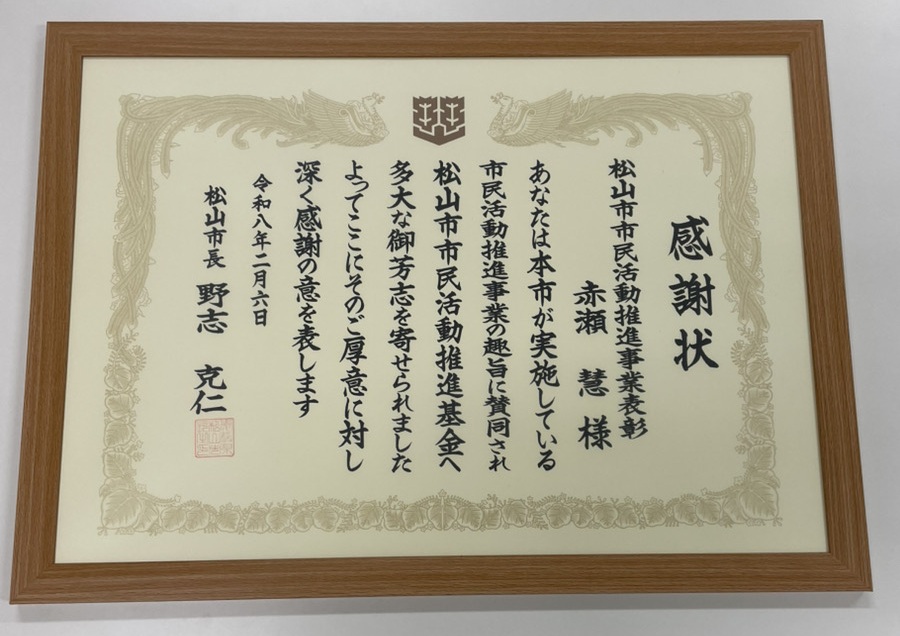 感謝状
松山市市民活動推進事業表彰
赤瀬 慧 様
あなたは本市が実施している
市民活動推進事業の趣旨に賛同され
松山市市民活動推進基金へ
多大な御芳志を寄せられました
よってここにそのご厚意に対し
深く感謝の意を表します
令和八年二月六日
松山市長 野志 克仁